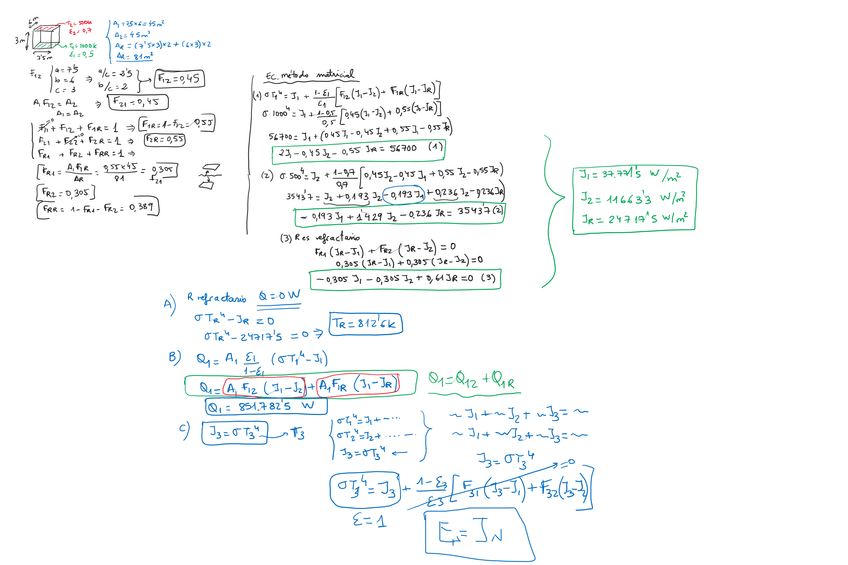 6m
T2=500K
ε2=0,7
3m
T1=1000K
ε1=0,5
7'5m
A1=7,5x6=45m²
A2=45m²
AR=(7'5x3)x2+(6x3)x2
AR=81m²
F12 { a=7'5
b=6
c=3
⇒ a/c=2'5
b/c=2
F12=0,45
A1F12=A2
A1=A2
⇒ F21=0,45
F11+F12+F1R=1 ⇒ F1R=1-F12=0,55
F21+F22+F2R=1 ⇒ F2R=0,55
FR1+FR2+FRR=1 ⇒
FR1=A1F1R/AR=0,55x45/81=0,305
FR2=0,305
FRR=1-FR1-FR2=0,389
EC. método matricial
(1) σT1⁴=J1+1-ε1/ε1[F12(J1-J2)+F1R(J1-JR)]
σ1000⁴=J1+1-0,5/0,5[0,45(J1-J2)+0,55(J1-JR)]
56700=J1+(0,45J1-0,45J2+0,55J1-0,55JR)
2J1-0,45J2-0,55JR=56700 (1)
(2) σ·500⁴=J2+1-0,7/0,7[0,45J2-0,45J1+0,55J2-0,55JR]
3543'7=J2+0,193J2-0,193J1+0,236J2-0,236JR
-0,193J1+1'429J2-0,236JR=3543'7 (2)
(3) R es refractario
FR1(JR-J1)+FR2(JR-J2)=0
0,305(JR-J1)+0,305(JR-J2)=0
-0,305J1-0,305J2+0,61JR=0 (3)
J1=37.771'5 W/m²
J2=11663'3 W/m²
JR=24717'5 W/m²
A) R refractario Q=0W
σTR⁴-JR=0
σTR⁴-24717'5=0 ⇒ TR=812'6K
B) Q1=A1 ε1/1-ε1 (σT1⁴-J1)
Q1=A1F12(J1-J2)+A1F1R(J1-JR)
Q1=Q12+Q1R
Q1=851.782'5 W
C) J3=σT3⁴ → T3
σT1⁴=J1+....
σT2⁴=J2+.......
J3=σT3⁴ ←
~J1+~J2+~J3=~
~J1+~J2+~J3=~
J3=σT3⁴
σT3⁴=J3+1-ε3/ε3[F31(J3-J1)+F32(J3-J2)] =0
ε=1
=JN